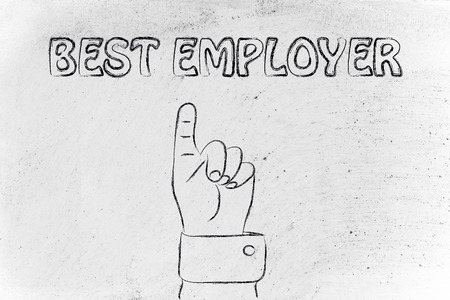 BEST EMPLOYER